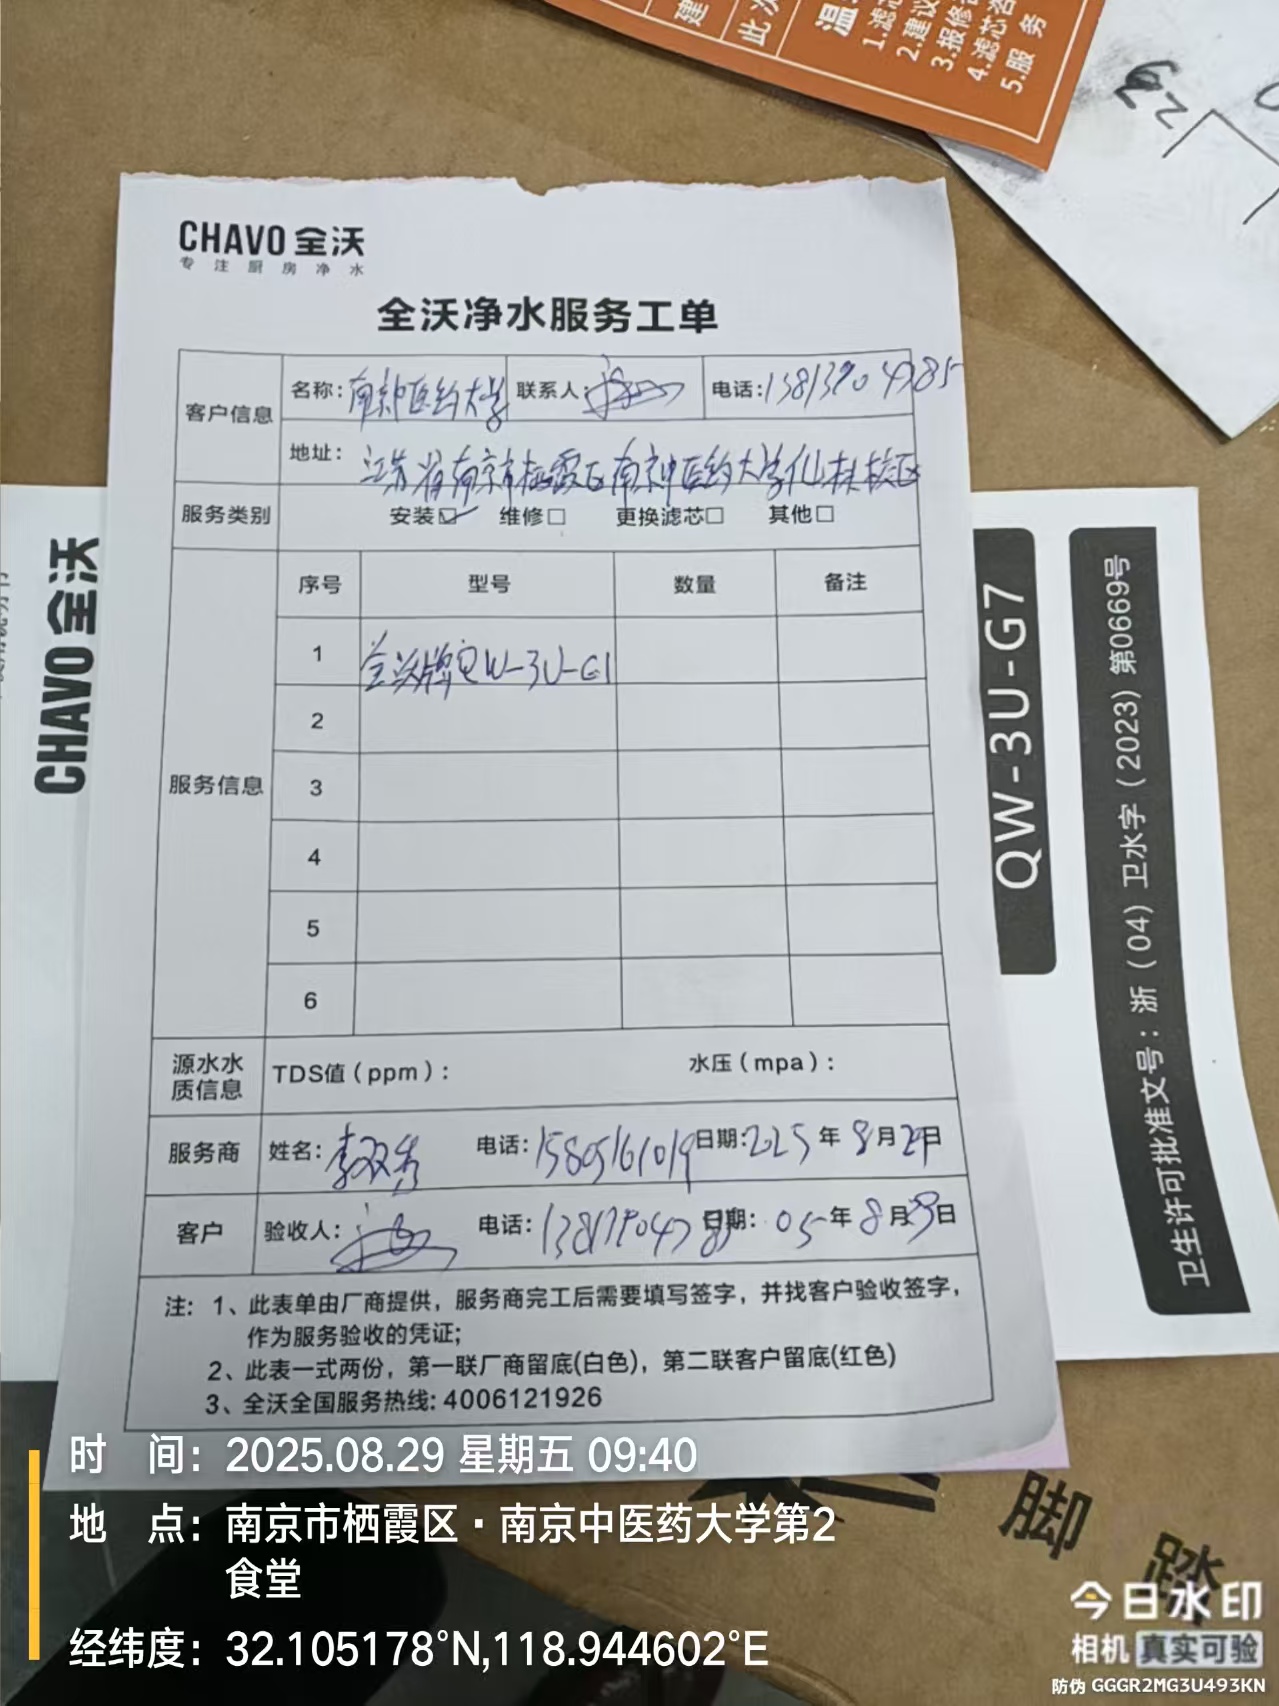 建
此次
温
1.滤芯
2.建议
3.报修
4.滤芯
5.服务
29
CHAVO 全沃
专注厨房净水
全沃净水服务工单
客户信息 名称：南京中医药大学 联系人： 电话：
地址：江苏省南京市栖霞区南京中医药大学仙林校区
服务类别 安装☑ 维修□ 更换滤芯□ 其他□
服务信息 序号 型号 数量 备注
1 全沃牌QW-3U-G1
2
3
4
5
6
源水水质信息 TDS值（ppm）： 水压（mpa）：
服务商 姓名：李双秀 电话：15805161019 日期：2025年8月29日
客户 验收人： 电话： 日期：05年8月29日
注：1、此表单由厂商提供，服务商完工后需要填写签字，并找客户验收签字，
作为服务验收的凭证；
2、此表一式两份，第一联厂商留底(白色)，第二联客户留底(红色)
3、全沃全国服务热线：4006121926
CHAVO 全沃
QW-3U-G7
卫生许可批准文号：浙（04）卫水字（2023）第0669号
脚踏
时间：2025.08.29 星期五 09:40
地点：南京市栖霞区·南京中医药大学第2
食堂
经纬度：32.105178°N,118.944602°E
今日水印
相机 真实可验
防伪 GGGR2MG3U493KN